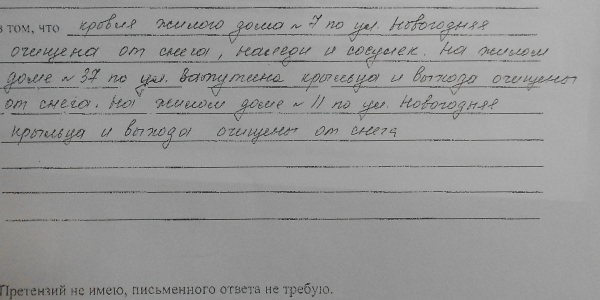 в том, что кровля жилого дома № 7 по ул. Новогодняя
очищена от снега, наледи и сосулек. На жилом
доме № 37 по ул. Ватутина крыльца и выхода очищены
от снега. На жилом доме № 11 по ул. Новогодняя
крыльца и выхода очищены от снега
Претензий не имею, письменного ответа не требую.